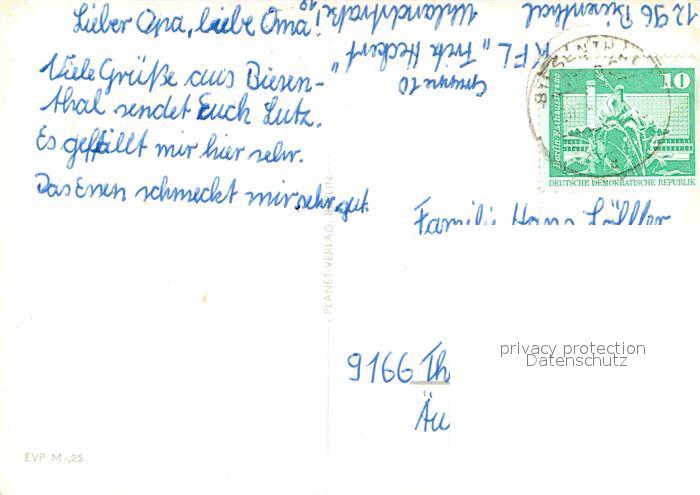 Lieber Opa, liebe Oma!
Viele Grüße aus Biesen-
thal sendet Euch Lutz.
Es gefällt mir hier sehr.
Das Essen schmeckt mir sehr gut.
1296 Biesenthal
Uhlandstraße
KFL „Fritz Heckert"
Gruppe 10
BIESENTHAL
10
Berlin, Rathausstraße
DEUTSCHE DEMOKRATISCHE REPUBLIK
Familie Hans
9166 Th
Äu
PLANET VERLAG, BERLIN
privacy protection
Datenschutz
EVP M -,25